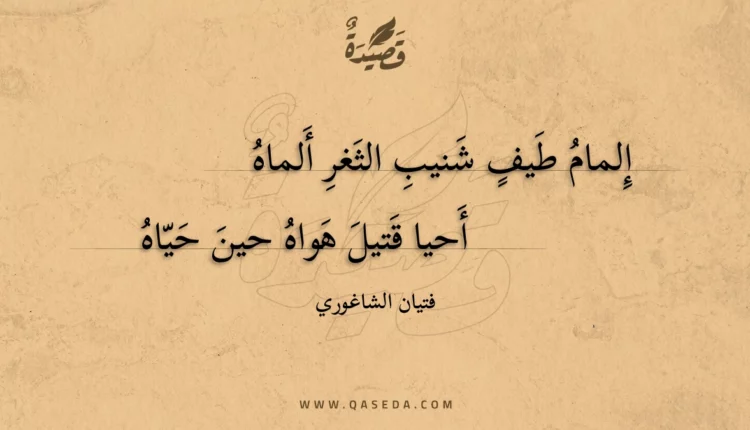 قَصِيْدَةٌ
إِلمامُ طَيفٍ شَنيبِ الثَغرِ أَلماهُ
أَحيا قَتيلَ هَواهُ حينَ حَيّاهُ
فتيان الشاغوري
WWW.QASEDA.COM